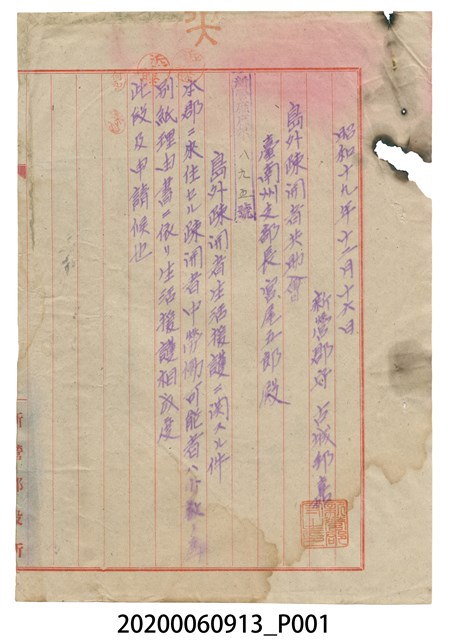 昭和十九年十二月十六日
新營郡守 古城部嘉
島外疎開者共助會
臺南州支部長宮尾五郎殿
八九五號
島外疎開者生活援護ニ関スル件
本郡ニ來住セル疎開者中勞働可能者ハ
別紙理由書ニ依リ生活援護相成度
此段及申請候也
新營郡役所
20200060913_P001